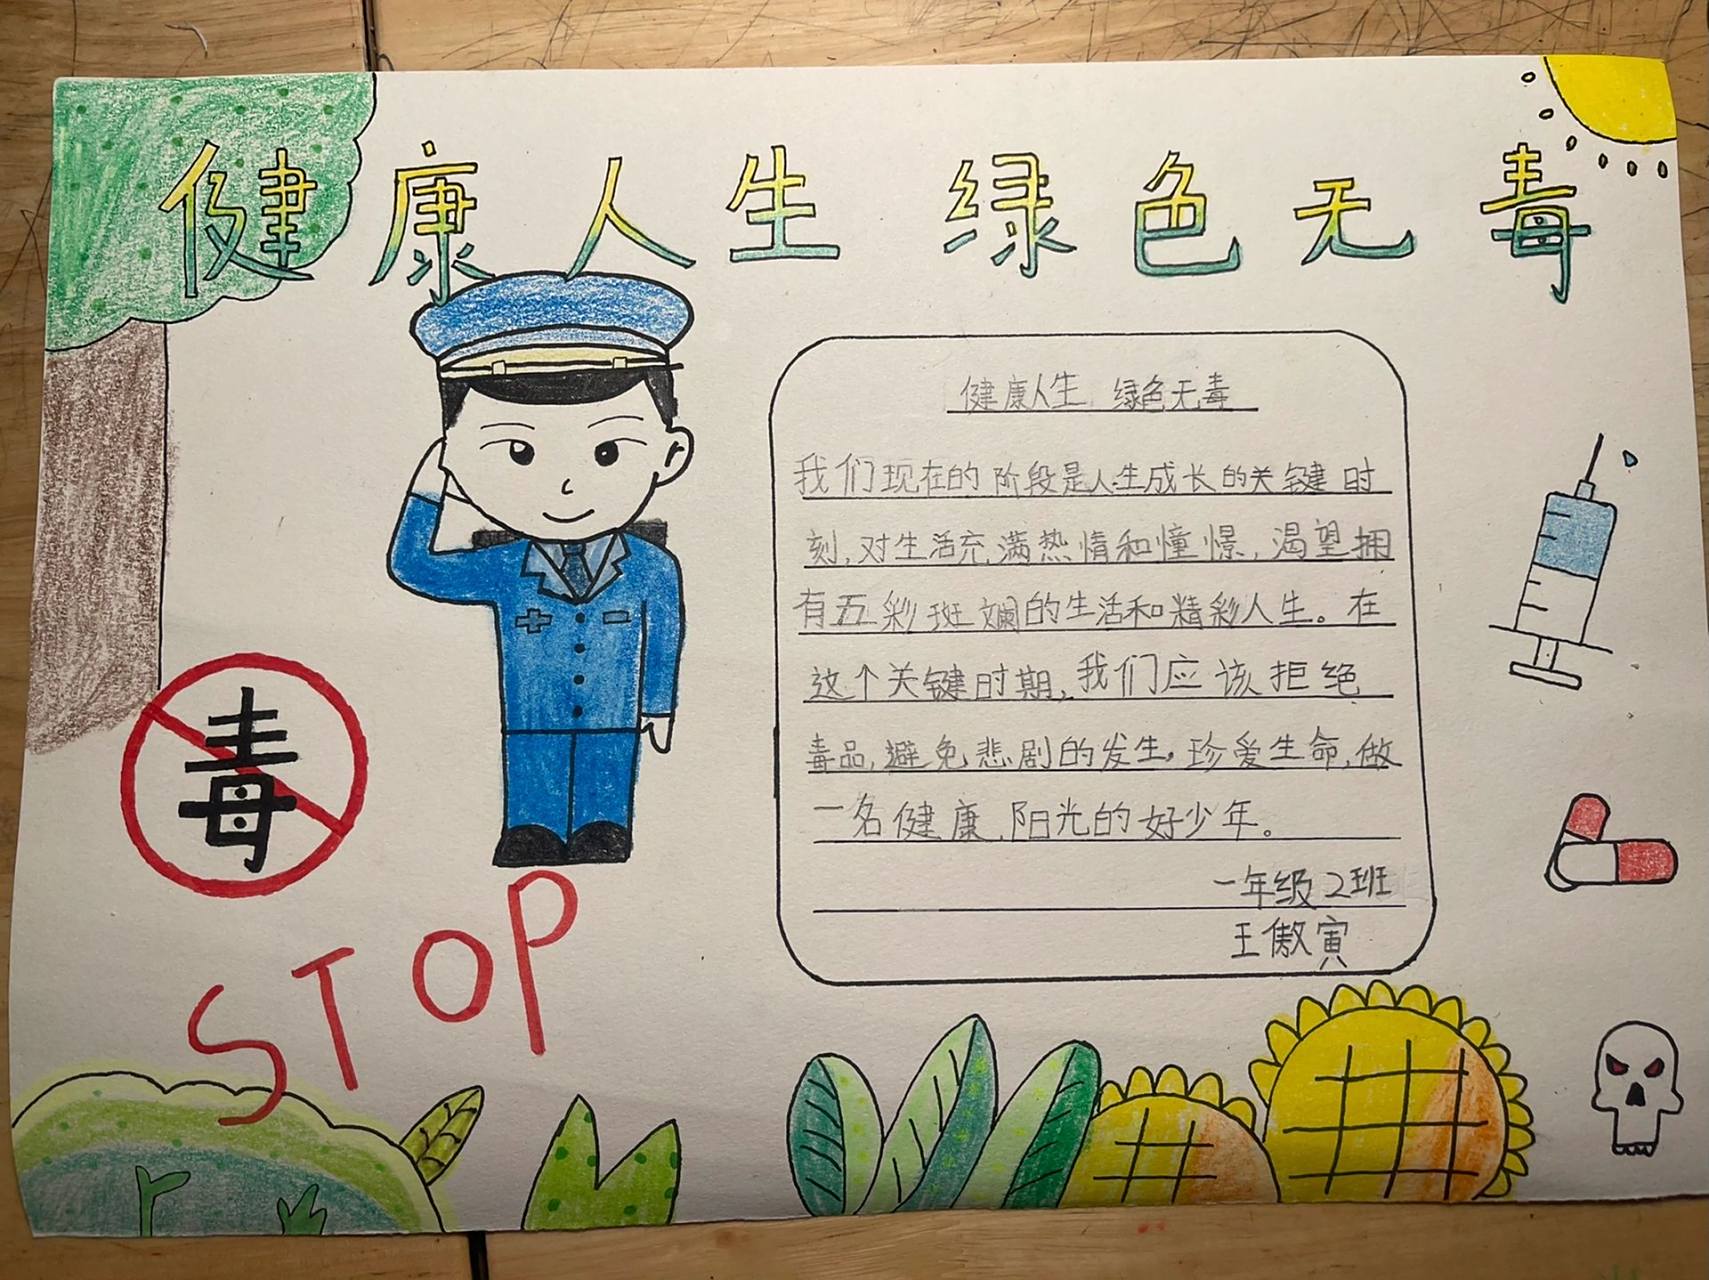 健康人生 绿色无毒
健康人生 绿色无毒
我们现在的阶段是人生成长的关键时
刻,对生活充满热情和憧憬,渴望拥
有五彩斑斓的生活和精彩人生。在
这个关键时期,我们应该拒绝
毒品,避免悲剧的发生,珍爱生命,做
一名健康,阳光的好少年。
一年级2班
王傲寅
毒
STOP